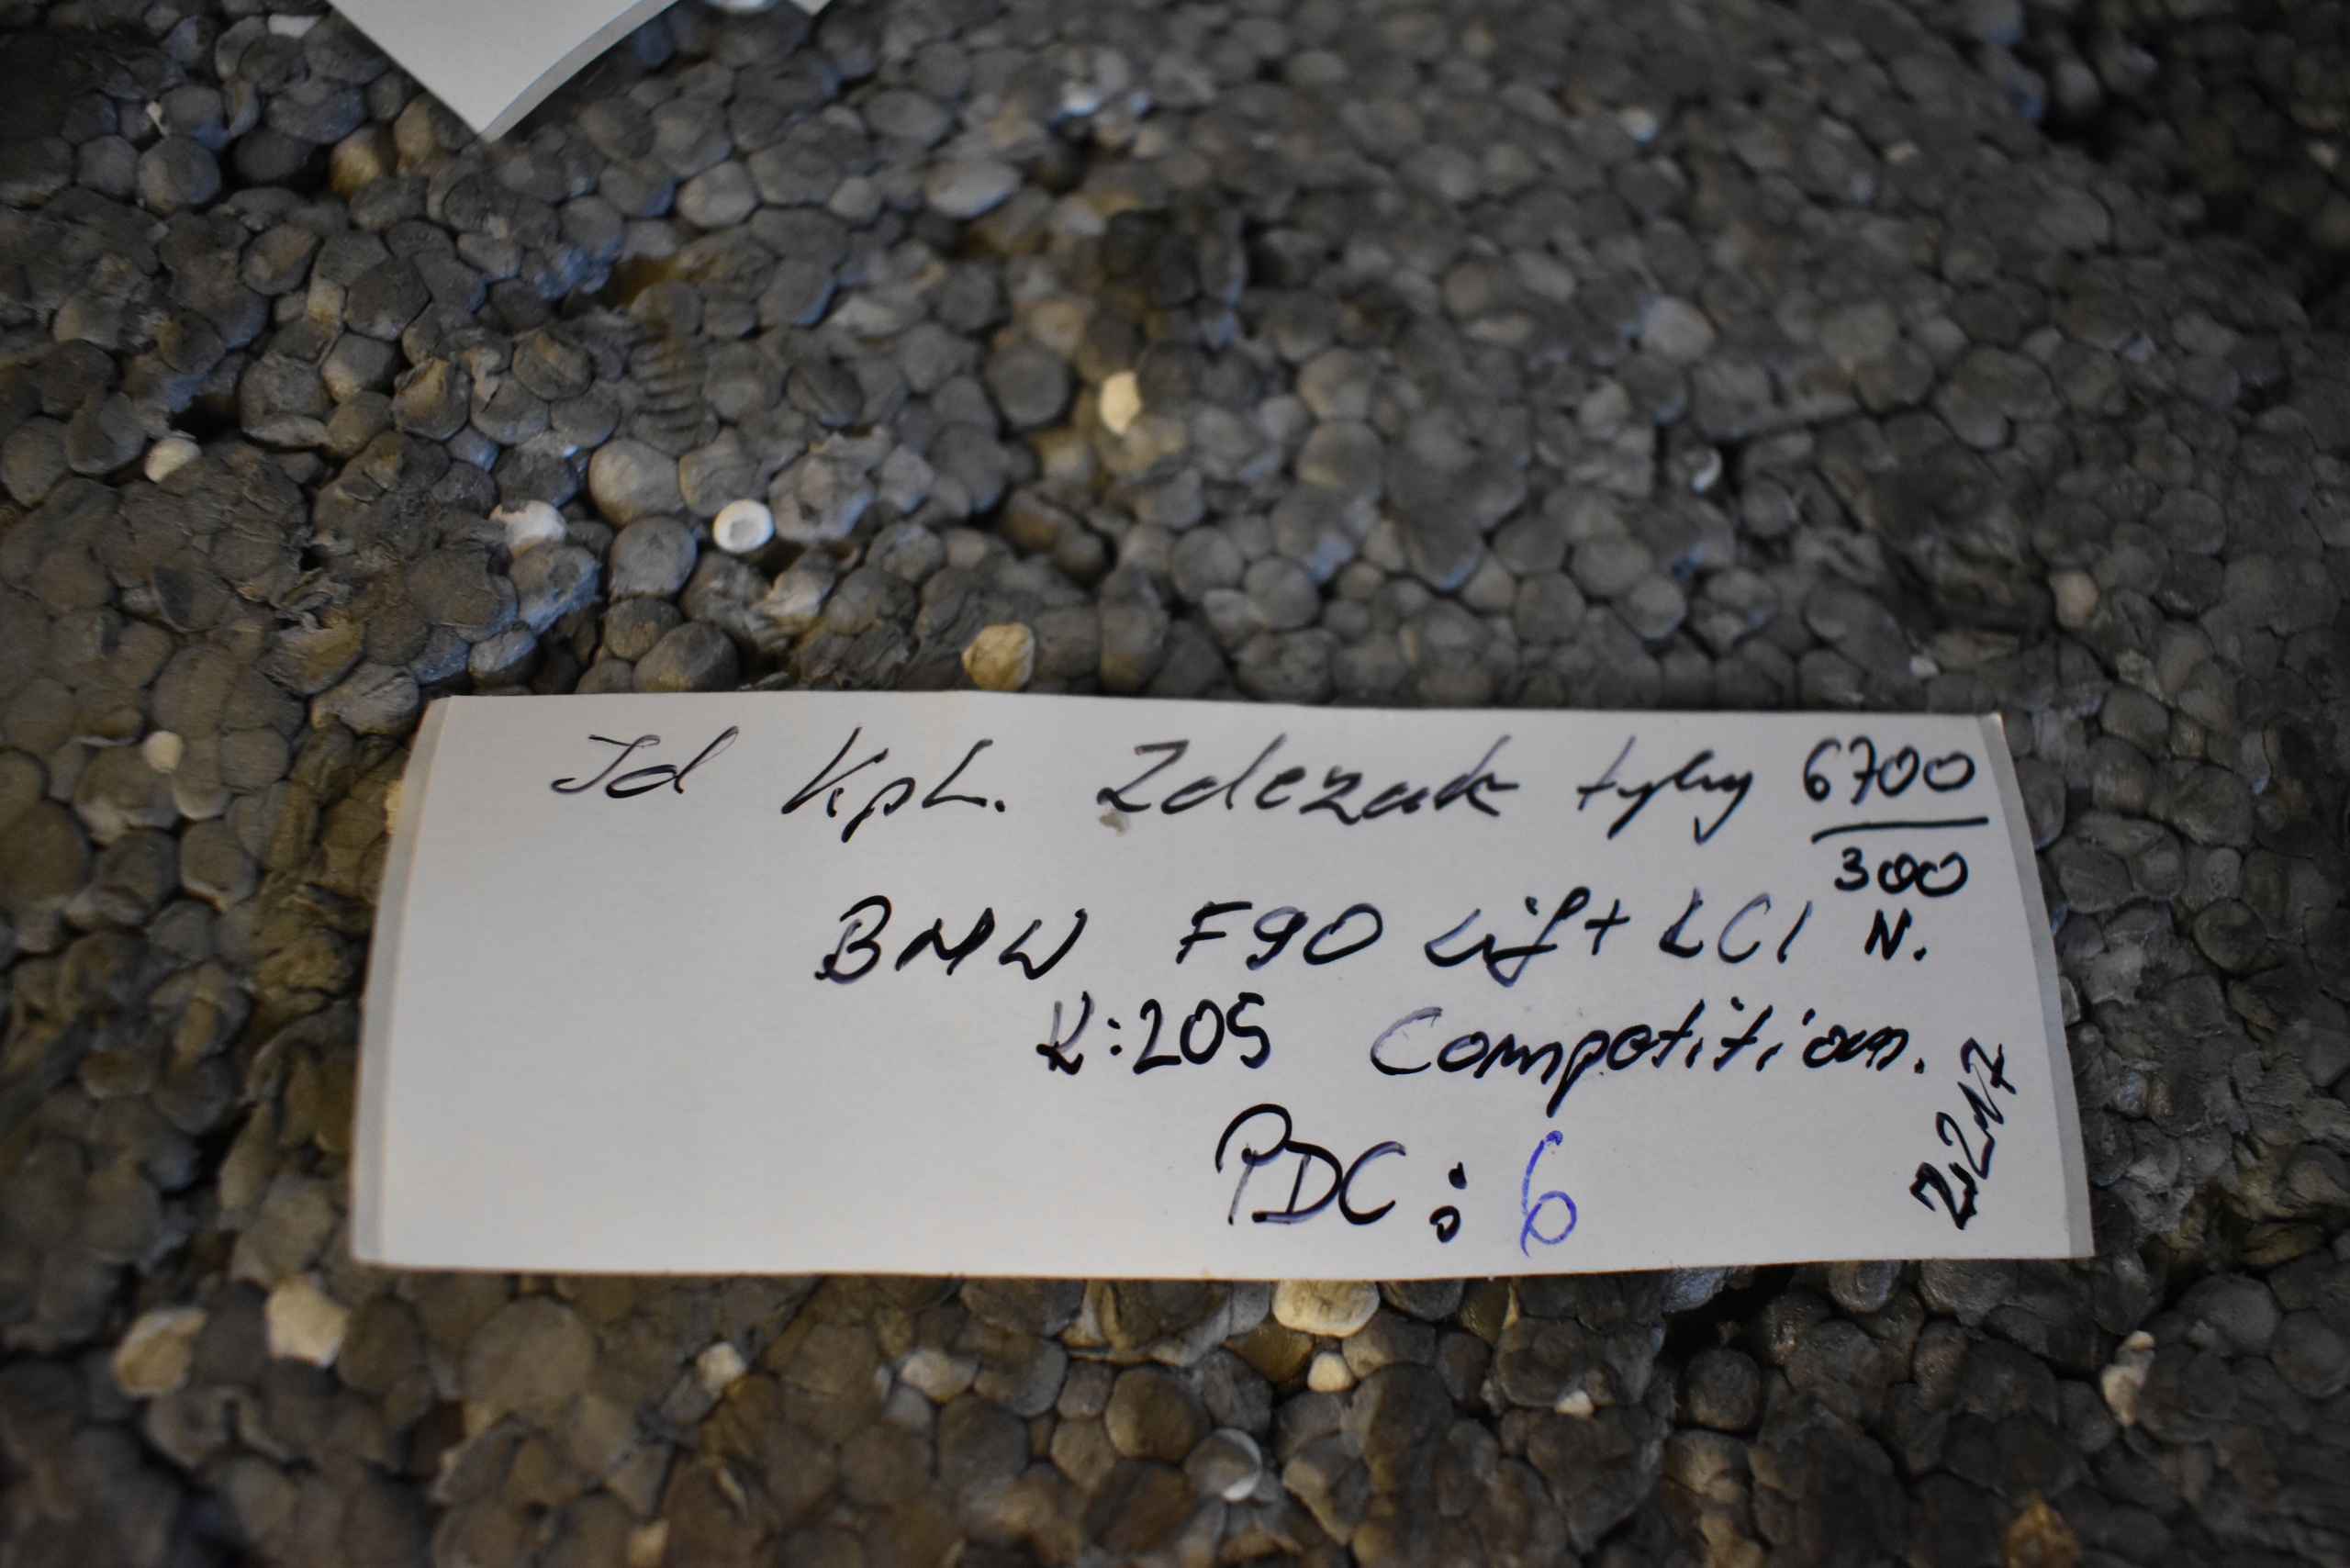 Id Kpl. Zdezak tylny 6700
300
BMW F90 Lift LCI N.
K:205 Competition.
PDC: 6